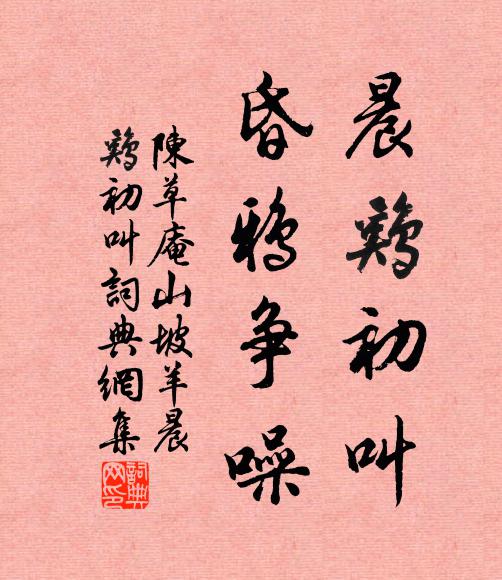 晨鷄初叫
昏鴉争噪
陳草庵山坡羊晨
鷄初叫詞典網集
詞典網印